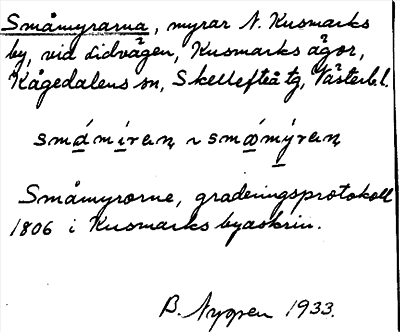 Småmyrarna, myrar N. Kusmarks
by, vid Lidvägen, Kusmarks ägor,
Kågedalens sn, Skellefteå tg, Västerb. l.
Småmyrorne, graderingsprotokoll
1806 i Kusmarks byaskrin.
B. Nygren 1933.